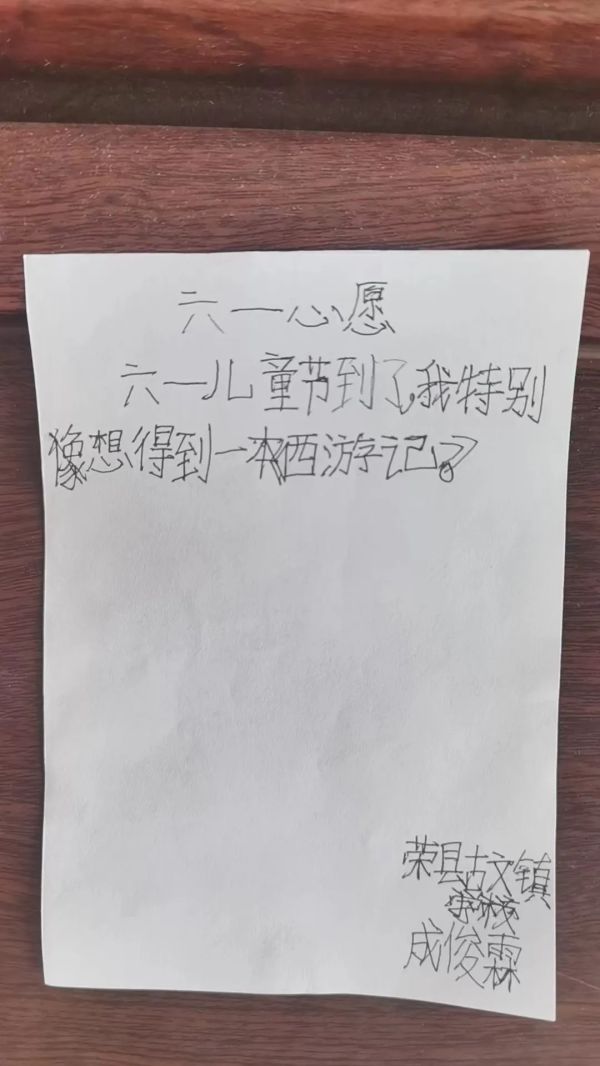 六一心愿
六一儿童节到了,我特别
想得到一本西游记。
荣县古文镇
学校
成俊霖